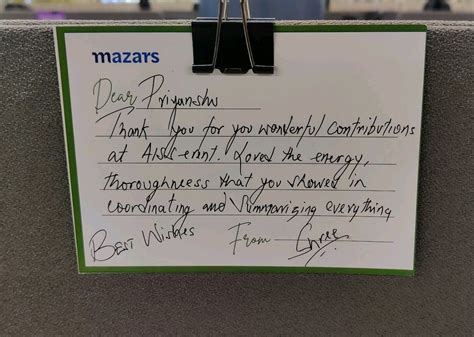 mazars
Dear Priyanshu
Thank you for you wonderful contributions
at event. Loved the energy,
thoroughness that you showed in
coordinating and summarizing everything
Best Wishes From Shree